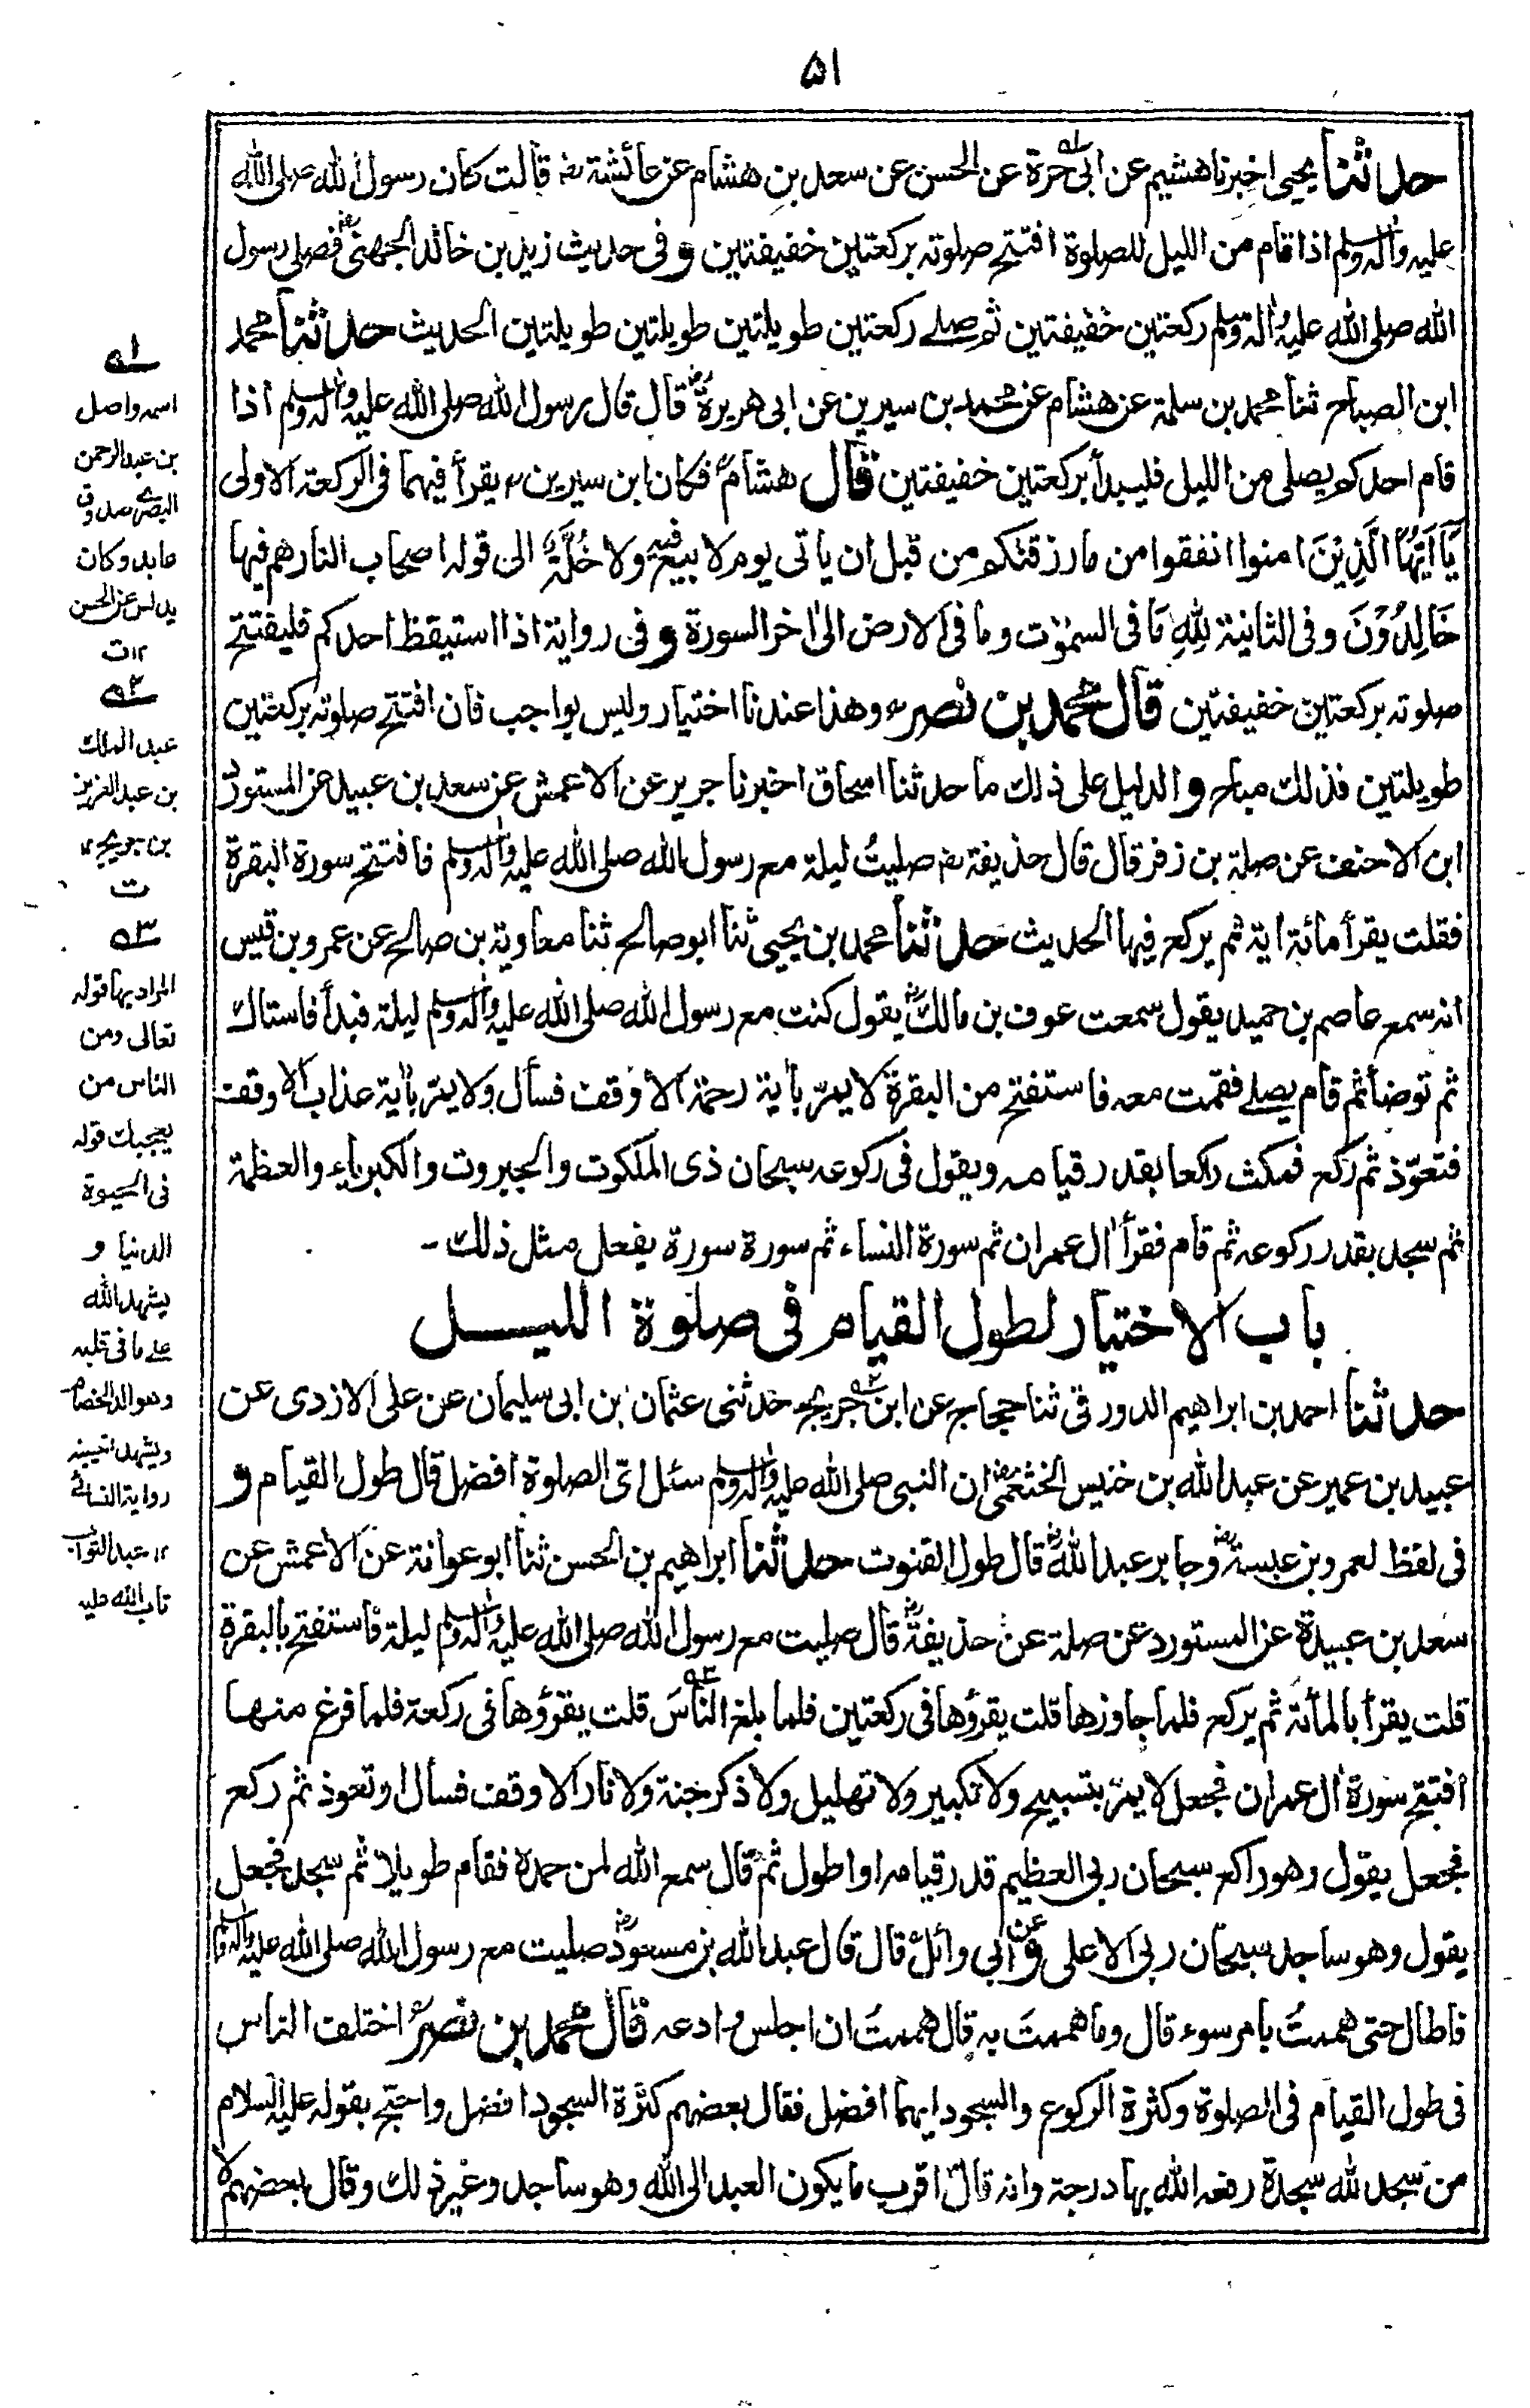 ۵۱
حدثنا يحيى اخبرنا هشيم عن ابى حرة عن الحسن عن سعد بن هشام عن عائشة رض قالت كان رسول الله صلى الله
عليه وآله وسلم اذا قام من الليل للصلوة افتتح صلوته بركعتين خفيفتين و فى حديث زيد بن خالد الجهنى رض فصلى رسول
الله صلى الله عليه وآله وسلم ركعتين خفيفتين ثم صلے ركعتين طويلتين طويلتين طويلتين الحديث حدثنا محمد
ابن الصباح ثنا محمد بن سلمة عن هشام عن محمد بن سيرين عن ابى هريرة رض قال قال رسول الله صلى الله عليه وآله وسلم اذا
قام احدكم يصلى من الليل فليبدأ بركعتين خفيفتين قال هشام فكان ابن سيرين يقرأ فيهما فى الركعة الاولى
يَآ اَيُّهَا الَّذِيْنَ امنوا انفقوا من ما رزقنكم من قبل ان ياتى يوم لا بيع فيه ولا خُلَّةٌ الى قوله اصحاب النار هم فيها
خَالِدُوْنَ وفى الثانية لِلّٰهِ مَا فى السمٰوٰت وما فى الارض الىٰ اخر السورة و فى رواية اذا استيقظ احدكم فليفتتح
صلوته بركعتين خفيفتين قال محمد بن نصر وهذا عندنا اختيار وليس بواجب فان افتتح صلوته بركعتين
طويلتين فذلك مباح و الدليل على ذلك ما حدثنا اسحاق اخبرنا جرير عن الاعمش عن سعد بن عبيد عن المستورد
ابن الاحنف عن صلة بن زفر قال قال حذيفة رض صليتُ ليلة مع رسول الله صلى الله عليه وآله وسلم فافتتح سورة البقرة
فقلت يقرأ مائة اية ثم يركع فيها الحديث حدثنا محمد بن يحيى ثنا ابو صالح ثنا معاوية بن صالح عن عمرو بن قيس
انه سمع عاصم بن حميد يقول سمعت عوف بن مالك رض يقول كنت مع رسول الله صلى الله عليه وآله وسلم ليلة فبدأ فاستاك
ثم توضأ ثم قام يصلے فقمت معه فاستفتح من البقرة لا يمرّ بآية رحمة الا وقف فسأل ولا يمرّ بآية عذاب الا وقف
فتعوّذ ثم ركع فمكث راكعا بقدر قيامه ويقول فى ركوعه سبحان ذى الملكوت والجبروت والكبرياء والعظمة
ثم سجد بقدر ركوعه ثم قام فقرأ اٰل عمران ثم سورة النساء ثم سورة سورة يفعل مثل ذلك -
باب الاختيار لطول القيام فى صلوة الليل
حدثنا احمد بن ابراهيم الدورقى ثنا حجاج عن ابن جريج حدثنى عثمان بن ابى سليمان عن على الازدى عن
عبيد بن عمير عن عبد الله بن خنيس الخثعمى رض ان النبى صلى الله عليه وآله وسلم سئل اىّ الصلوة افضل قال طول القيام و
فى لفظ لعمرو بن عبسة رض وجابر عبد الله رض قال طول القنوت حدثنا ابراهيم بن الحسن ثنا ابو عوانة عن الاعمش عن
سعد بن عبيدة عن المستورد عن صلة عن حذيفة رض قال صليت مع رسول الله صلى الله عليه وآله وسلم ليلة فاستفتح بالبقرة
قلت يقرأ بالمأئة ثم يركع فلما جاوزها قلت يقرؤها فى ركعتين فلما بلغ الناسَ قلت يقرؤها فى ركعة فلما فرغ منها
افتتح سورة اٰل عمران فجعل لا يمرّ بتسبيح ولا تكبير ولا تهليل ولا ذكر جنة ولا نار الا وقف فسأل او تعوذ ثم ركع
فجعل يقول وهو راكع سبحان ربى العظيم قدر قيامه او اطول ثم قال سمع الله لمن حمده فقام طويلا ثم سجد فجعل
يقول وهو ساجد سبحان ربى الاعلى و عن ابي وائل قال قال عبد الله بن مسعود رض صليت مع رسول الله صلى الله عليه وآله وسلم
فاطال حتى هممتُ بامر سوء قال وما هممتَ به قال هممتُ ان اجلس وادعه قال محمد بن نصر اختلف الناس
فى طول القيام فى الصلوة وكثرة الركوع والسجود ايهما افضل فقال بعضهم كثرة السجود افضل واحتج بقوله عليه السلام
من سجد لله سجدة رفعه الله بها درجة وانه قال اقرب ما يكون العبد الى الله وهو ساجد وغير ذلك وقال بعضهم لا
لـه۱
اسمه واصل
بن عبد الرحمن
البصرے صدوق
عابد وكان
يدلس عن الحسن
۱۲ ت
لـه۲
عبد الملك
بن عبد العزيز
بن جريج ۱۲
ت
لـه۳
المراد بها قوله
تعالى ومن
الناس من
يعجبك قوله
فى الحيوة
الدنيا و
يشهد الله
علے ما فى قلبه
وهو الد الخصام
ويشهد تعيينه
رواية النسائے
۱۲ عبد التواب
تاب الله عليه